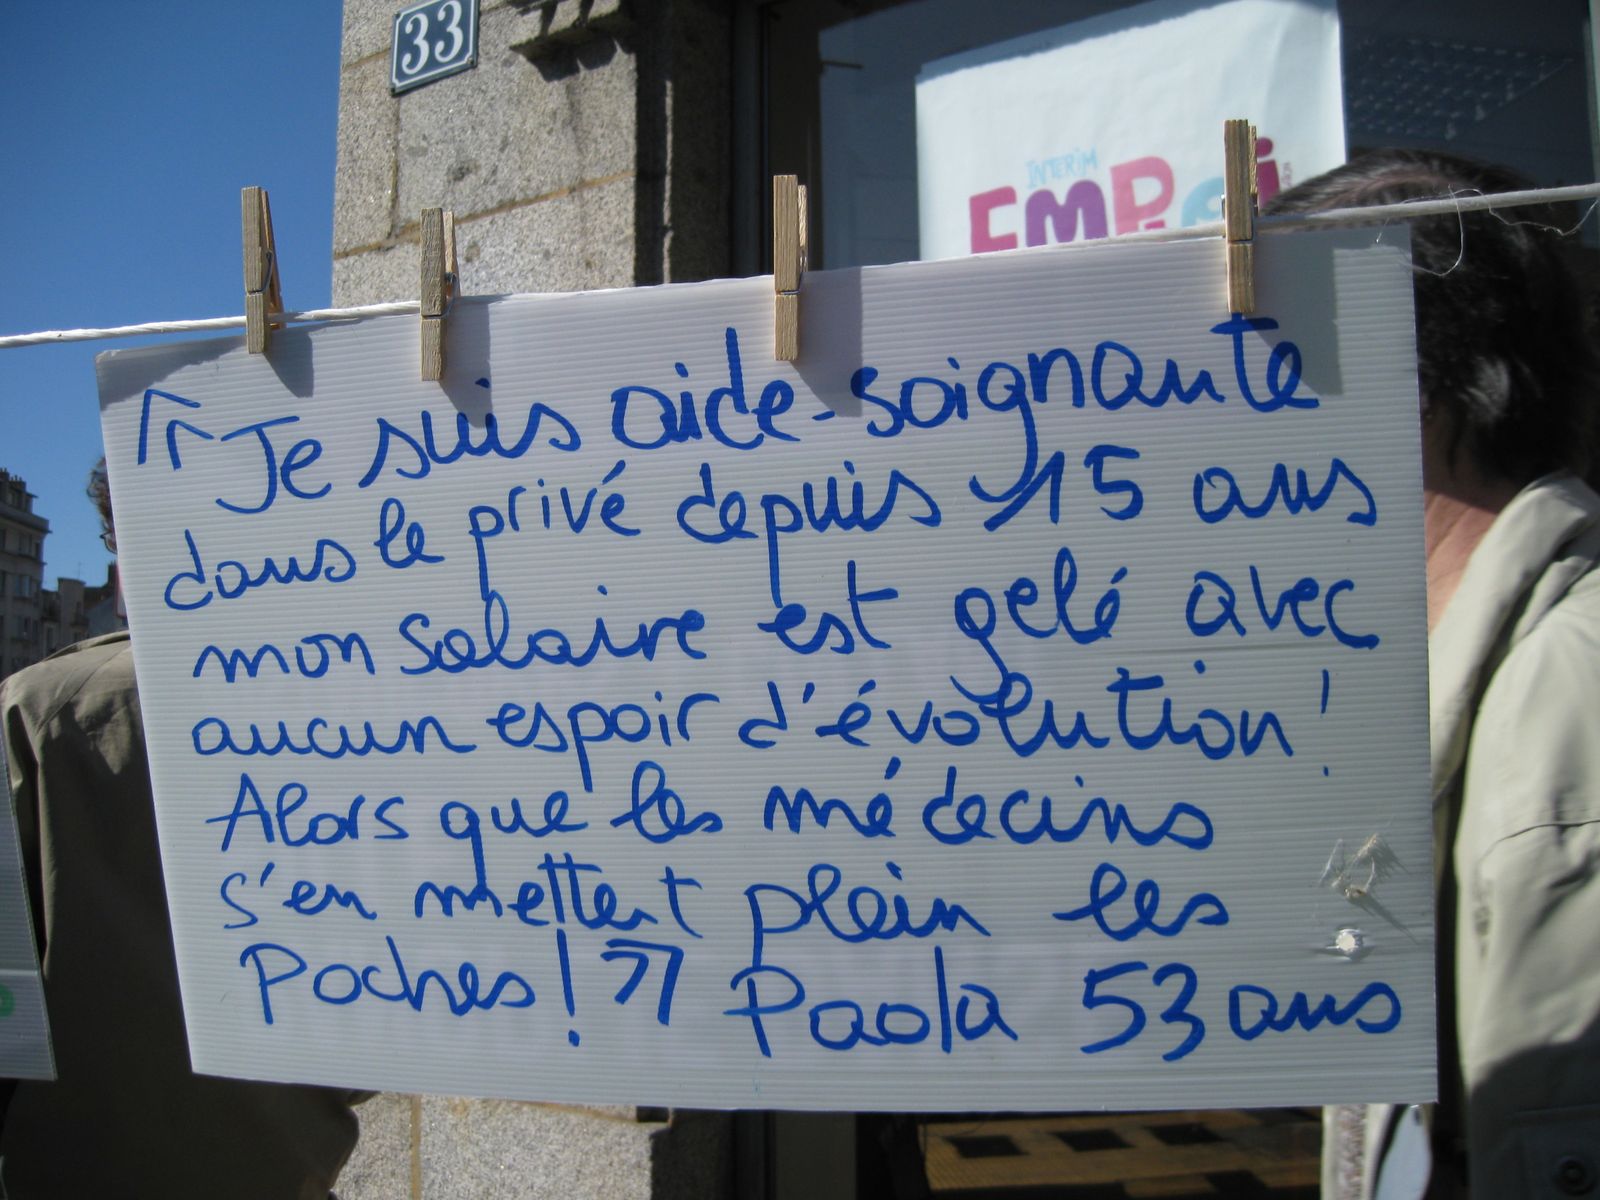 33
INTERIM
EMPloi
"Je suis aide-soignante
dans le privé depuis 15 ans
mon salaire est gelé avec
aucun espoir d'évolution!
Alors que les médecins
s'en mettent plein les
Poches!" Paola 53 ans